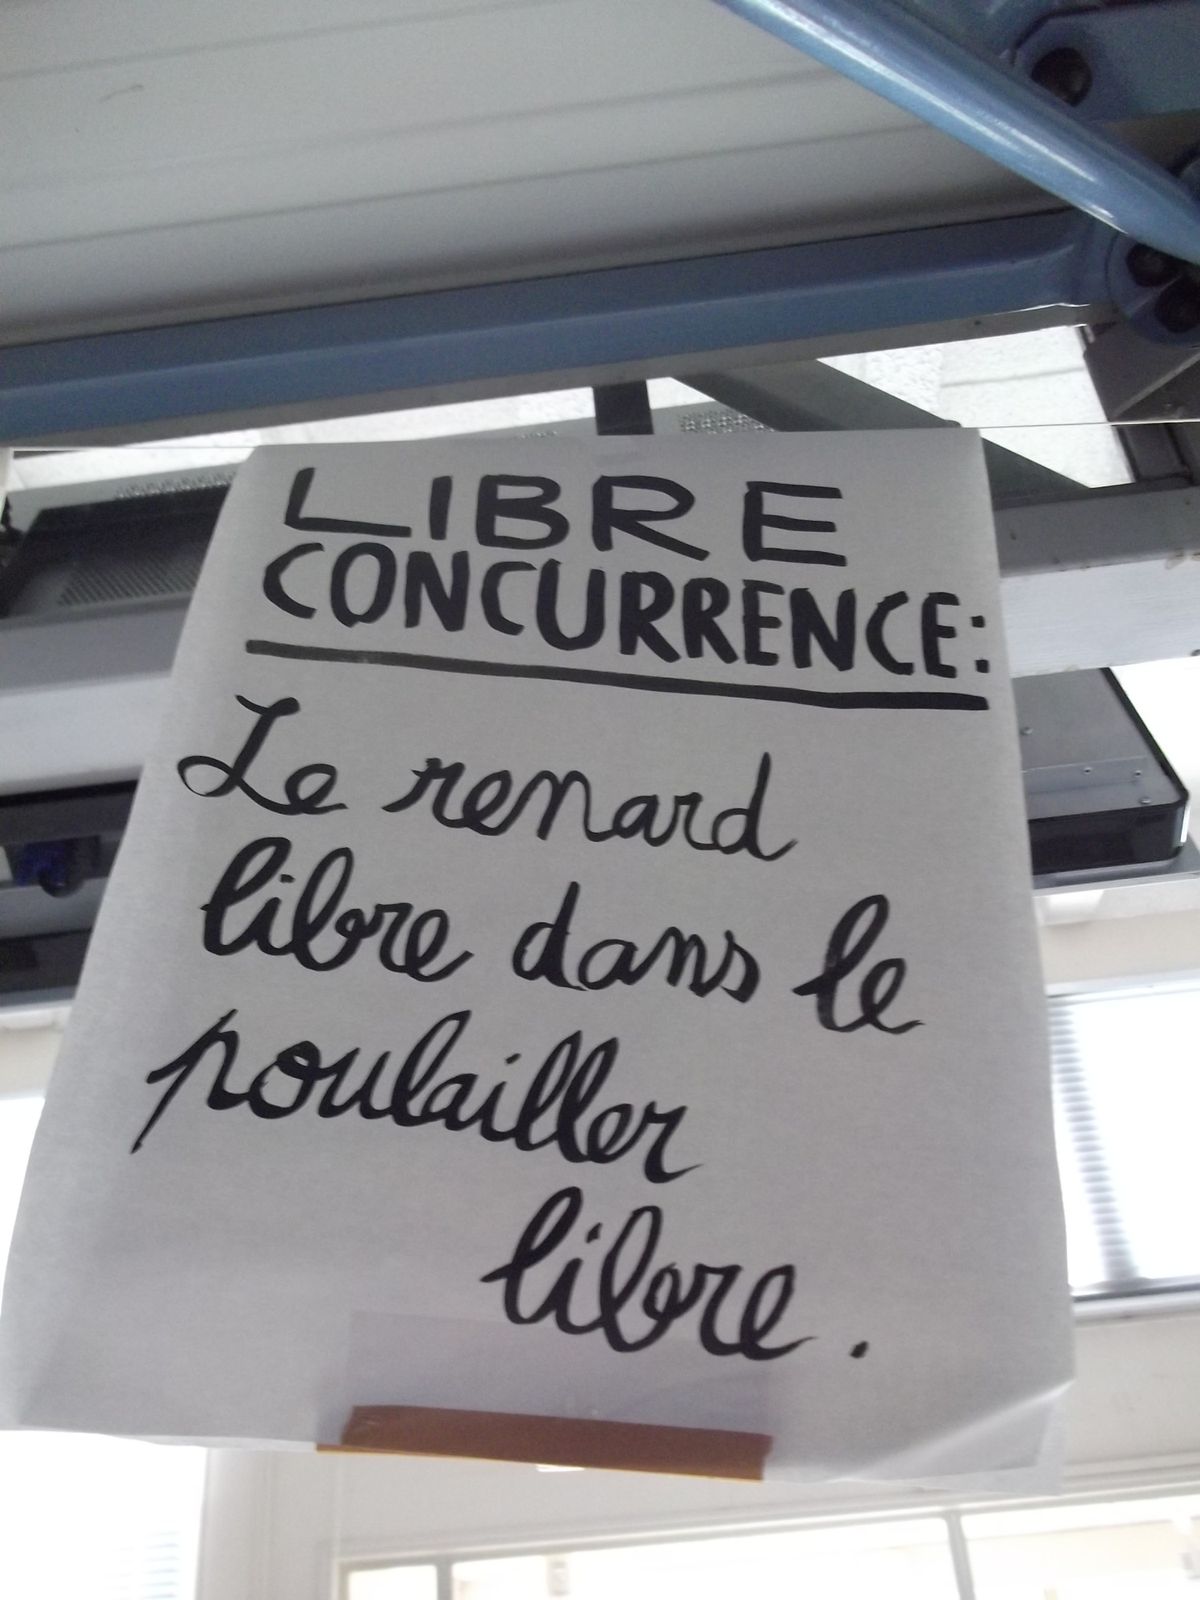 LIBRE
CONCURRENCE:
Le renard
libre dans le
poulailler
libre.